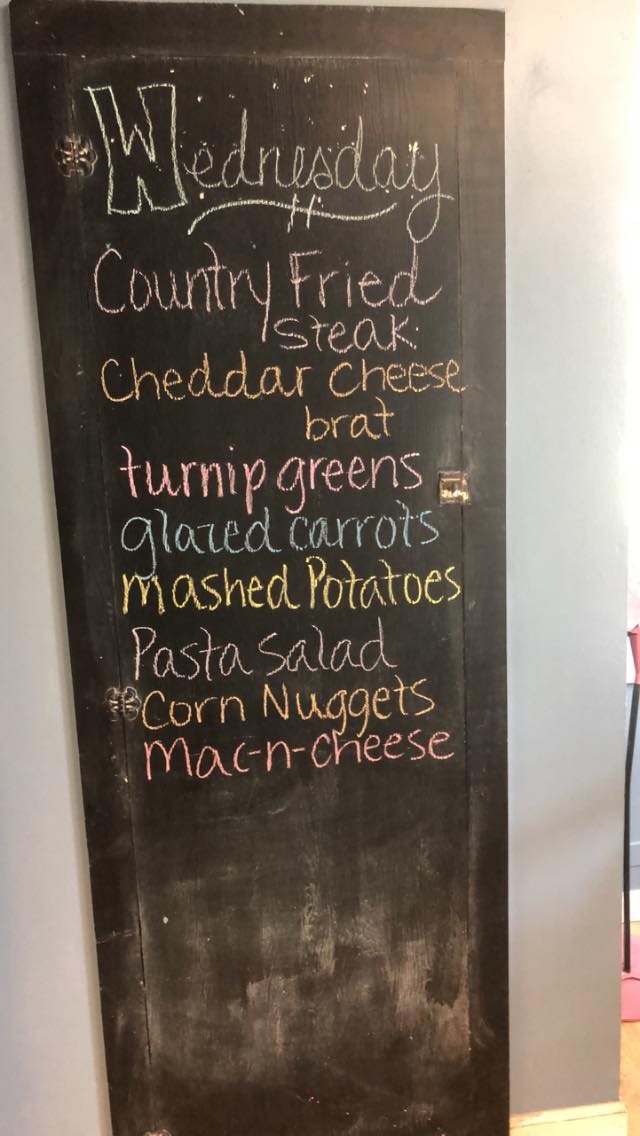 Wednesday
Country Fried
Steak
Cheddar cheese
brat
turnip greens
glazed carrots
mashed Potatoes
Pasta Salad
Corn Nuggets
Mac-n-cheese